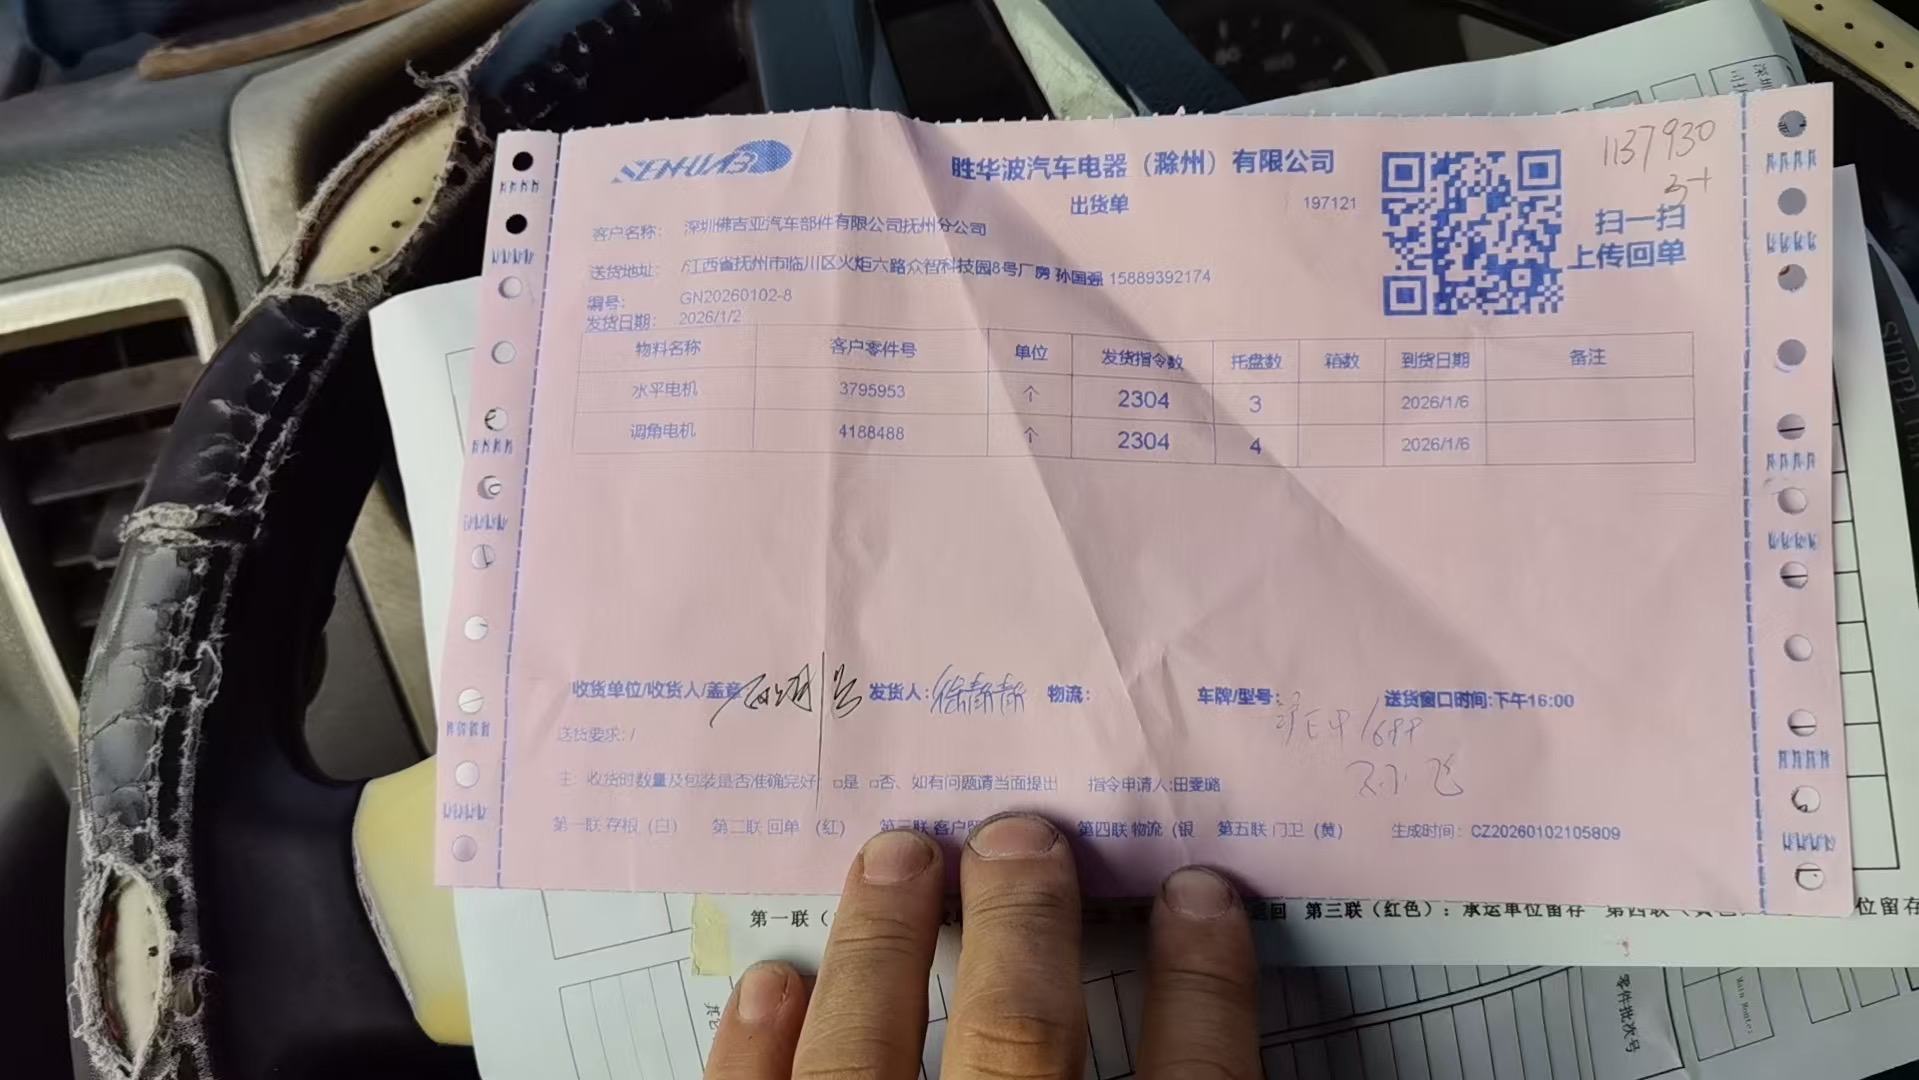 SENHUAB
胜华波汽车电器（滁州）有限公司
出货单
197121
1137930
扫一扫
上传回单
客户名称： 深圳佛吉亚汽车部件有限公司抚州分公司
送货地址： /江西省抚州市临川区火炬六路众智科技园8号厂房 孙国强 15889392174
编号： GN20260102-8
发货日期： 2026/1/2
物料名称 客户零件号 单位 发货指令数 托盘数 箱数 到货日期 备注
水平电机 3795953 个 2304 3 2026/1/6
调角电机 4188488 个 2304 4 2026/1/6
收货单位/收货人/盖章 发货人：徐静静 物流： 车牌/型号： 送货窗口时间:下午16:00
送货要求: /
主： 收货时数量及包装是否准确完好 □是 □否、如有问题请当面提出 指令申请人:田雯璐
第一联 存根（白） 第二联 回单（红） 第三联 客户 第四联 物流（银 第五联 门卫（黄） 生成时间： CZ20260102105809
第一联（ 返回 第三联（红色）：承运单位留存 第四联 位留存
零件批次号
Main Route:
其它
SUPPLIER